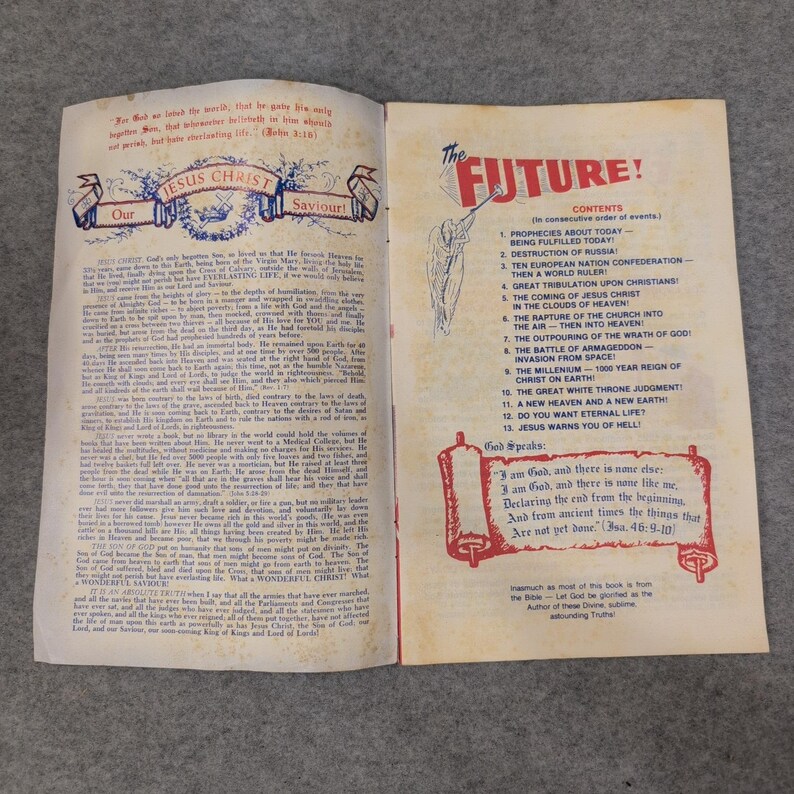 "For God so loved the world, that he gave his only
begotten Son, that whosoever believeth in him should
not perish, but have everlasting life." (John 3:16)
JESUS CHRIST
Our
Saviour!
JESUS CHRIST, God's only begotten Son, so loved us that He forsook Heaven for
33½ years, came down to this Earth, being born of the Virgin Mary, living the holy life
that He lived, finally dying upon the Cross of Calvary, outside the walls of Jerusalem,
that we (you) might not perish but have EVERLASTING LIFE, if we would only believe
in Him, and receive Him as our Lord and Saviour.
JESUS came from the heights of glory — to the depths of humiliation, from the very
presence of Almighty God — to be born in a manger and wrapped in swaddling clothes.
He came from infinite riches — to abject poverty; from a life with God and the angels —
down to Earth to be spit upon by man, then mocked, crowned with thorns and finally
crucified on a cross between two thieves — all because of His love for YOU and me. He
was buried, but arose from the dead on the third day, as He had foretold his disciples
and as the prophets of God had prophesied hundreds of years before.
AFTER His resurrection, He had an immortal body. He remained upon Earth for 40
days, being seen many times by His disciples, and at one time by over 500 people. After
40 days He ascended back into Heaven and was seated at the right hand of God, from
whence He shall soon come back to Earth again; this time, not as the humble Nazarene,
but as King of Kings and Lord of Lords, to judge the world in righteousness. "Behold,
He cometh with clouds; and every eye shall see Him, and they also which pierced Him:
and all kindreds of the earth shall wail because of Him." (Rev. 1:7)
JESUS was born contrary to the laws of birth, died contrary to the laws of death,
arose contrary to the laws of the grave, ascended back to Heaven contrary to the laws of
gravitation, and He is soon coming back to Earth, contrary to the desires of Satan and
sinners, to establish His kingdom on Earth and to rule the nations with a rod of iron, as
King of King's and Lord of Lords, in righteousness.
JESUS never wrote a book, but no library in the world could hold the volumes of
books that have been written about Him. He never went to a Medical College, but He
has healed the multitudes, without medicine and making no charges for His services. He
never was a chef; but He fed over 5000 people with only five loaves and two fishes, and
had twelve baskets full left over. He never was a mortician, but He raised at least three
people from the dead while He was on Earth; He arose from the dead Himself, and
the hour is soon coming when "all that are in the graves shall hear his voice and shall
come forth; they that have done good unto the resurrection of life; and they that have
done evil unto the resurrection of damnation." (John 5:28-29)
JESUS never did marshall an army, draft a soldier, or fire a gun, but no military leader
ever had more followers give him such love and devotion, and voluntarily lay down
their lives for his cause. Jesus never became rich in this world's goods, (He was even
buried in a borrowed tomb) however He owns all the gold and silver in this world, and the
cattle on a thousand hills are His; all things having been created by Him. He left His
riches in Heaven and became poor, that we through his poverty might be made rich.
THE SON OF GOD put on humanity that sons of men might put on divinity. The
Son of God became the Son of man, that men might become sons of God. The Son of
God came from heaven to earth that sons of men might go from earth to heaven. The
Son of God suffered, bled and died upon the Cross, that sons of men might live; that
they might not perish but have everlasting life. What a WONDERFUL CHRIST! What
a WONDERFUL SAVIOUR!
IT IS AN ABSOLUTE TRUTH when I say that all the armies that have ever marched,
and all the navies that have ever been built, and all the Parliaments and Congresses that
have ever sat, and all the judges who have ever judged, and all the statesmen who have
ever spoken, and all the kings who ever reigned; all of them put together, have not affected
the life of man upon this earth as powerfully as has Jesus Christ, the Son of God; our
Lord, and our Saviour, our soon-coming King of Kings and Lord of Lords!
The
FUTURE!
CONTENTS
(In consecutive order of events.)
1. PROPHECIES ABOUT TODAY —
BEING FULFILLED TODAY!
2. DESTRUCTION OF RUSSIA!
3. TEN EUROPEAN NATION CONFEDERATION —
THEN A WORLD RULER!
4. GREAT TRIBULATION UPON CHRISTIANS!
5. THE COMING OF JESUS CHRIST
IN THE CLOUDS OF HEAVEN!
6. THE RAPTURE OF THE CHURCH INTO
THE AIR — THEN INTO HEAVEN!
7. THE OUTPOURING OF THE WRATH OF GOD!
8. THE BATTLE OF ARMAGEDDON —
INVASION FROM SPACE!
9. THE MILLENIUM — 1000 YEAR REIGN OF
CHRIST ON EARTH!
10. THE GREAT WHITE THRONE JUDGMENT!
11. A NEW HEAVEN AND A NEW EARTH!
12. DO YOU WANT ETERNAL LIFE?
13. JESUS WARNS YOU OF HELL!
God Speaks:
"I am God, and there is none else:
I am God, and there is none like me,
Declaring the end from the beginning,
And from ancient times the things that
Are not yet done." (Isa. 46: 9-10)
Inasmuch as most of this book is from
the Bible — Let God be glorified as the
Author of these Divine, sublime,
astounding Truths!